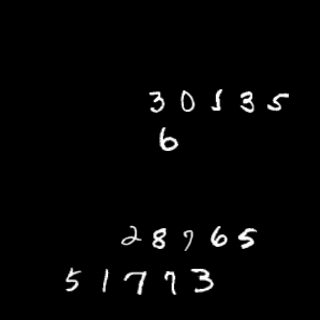 30135
6
28765
51773